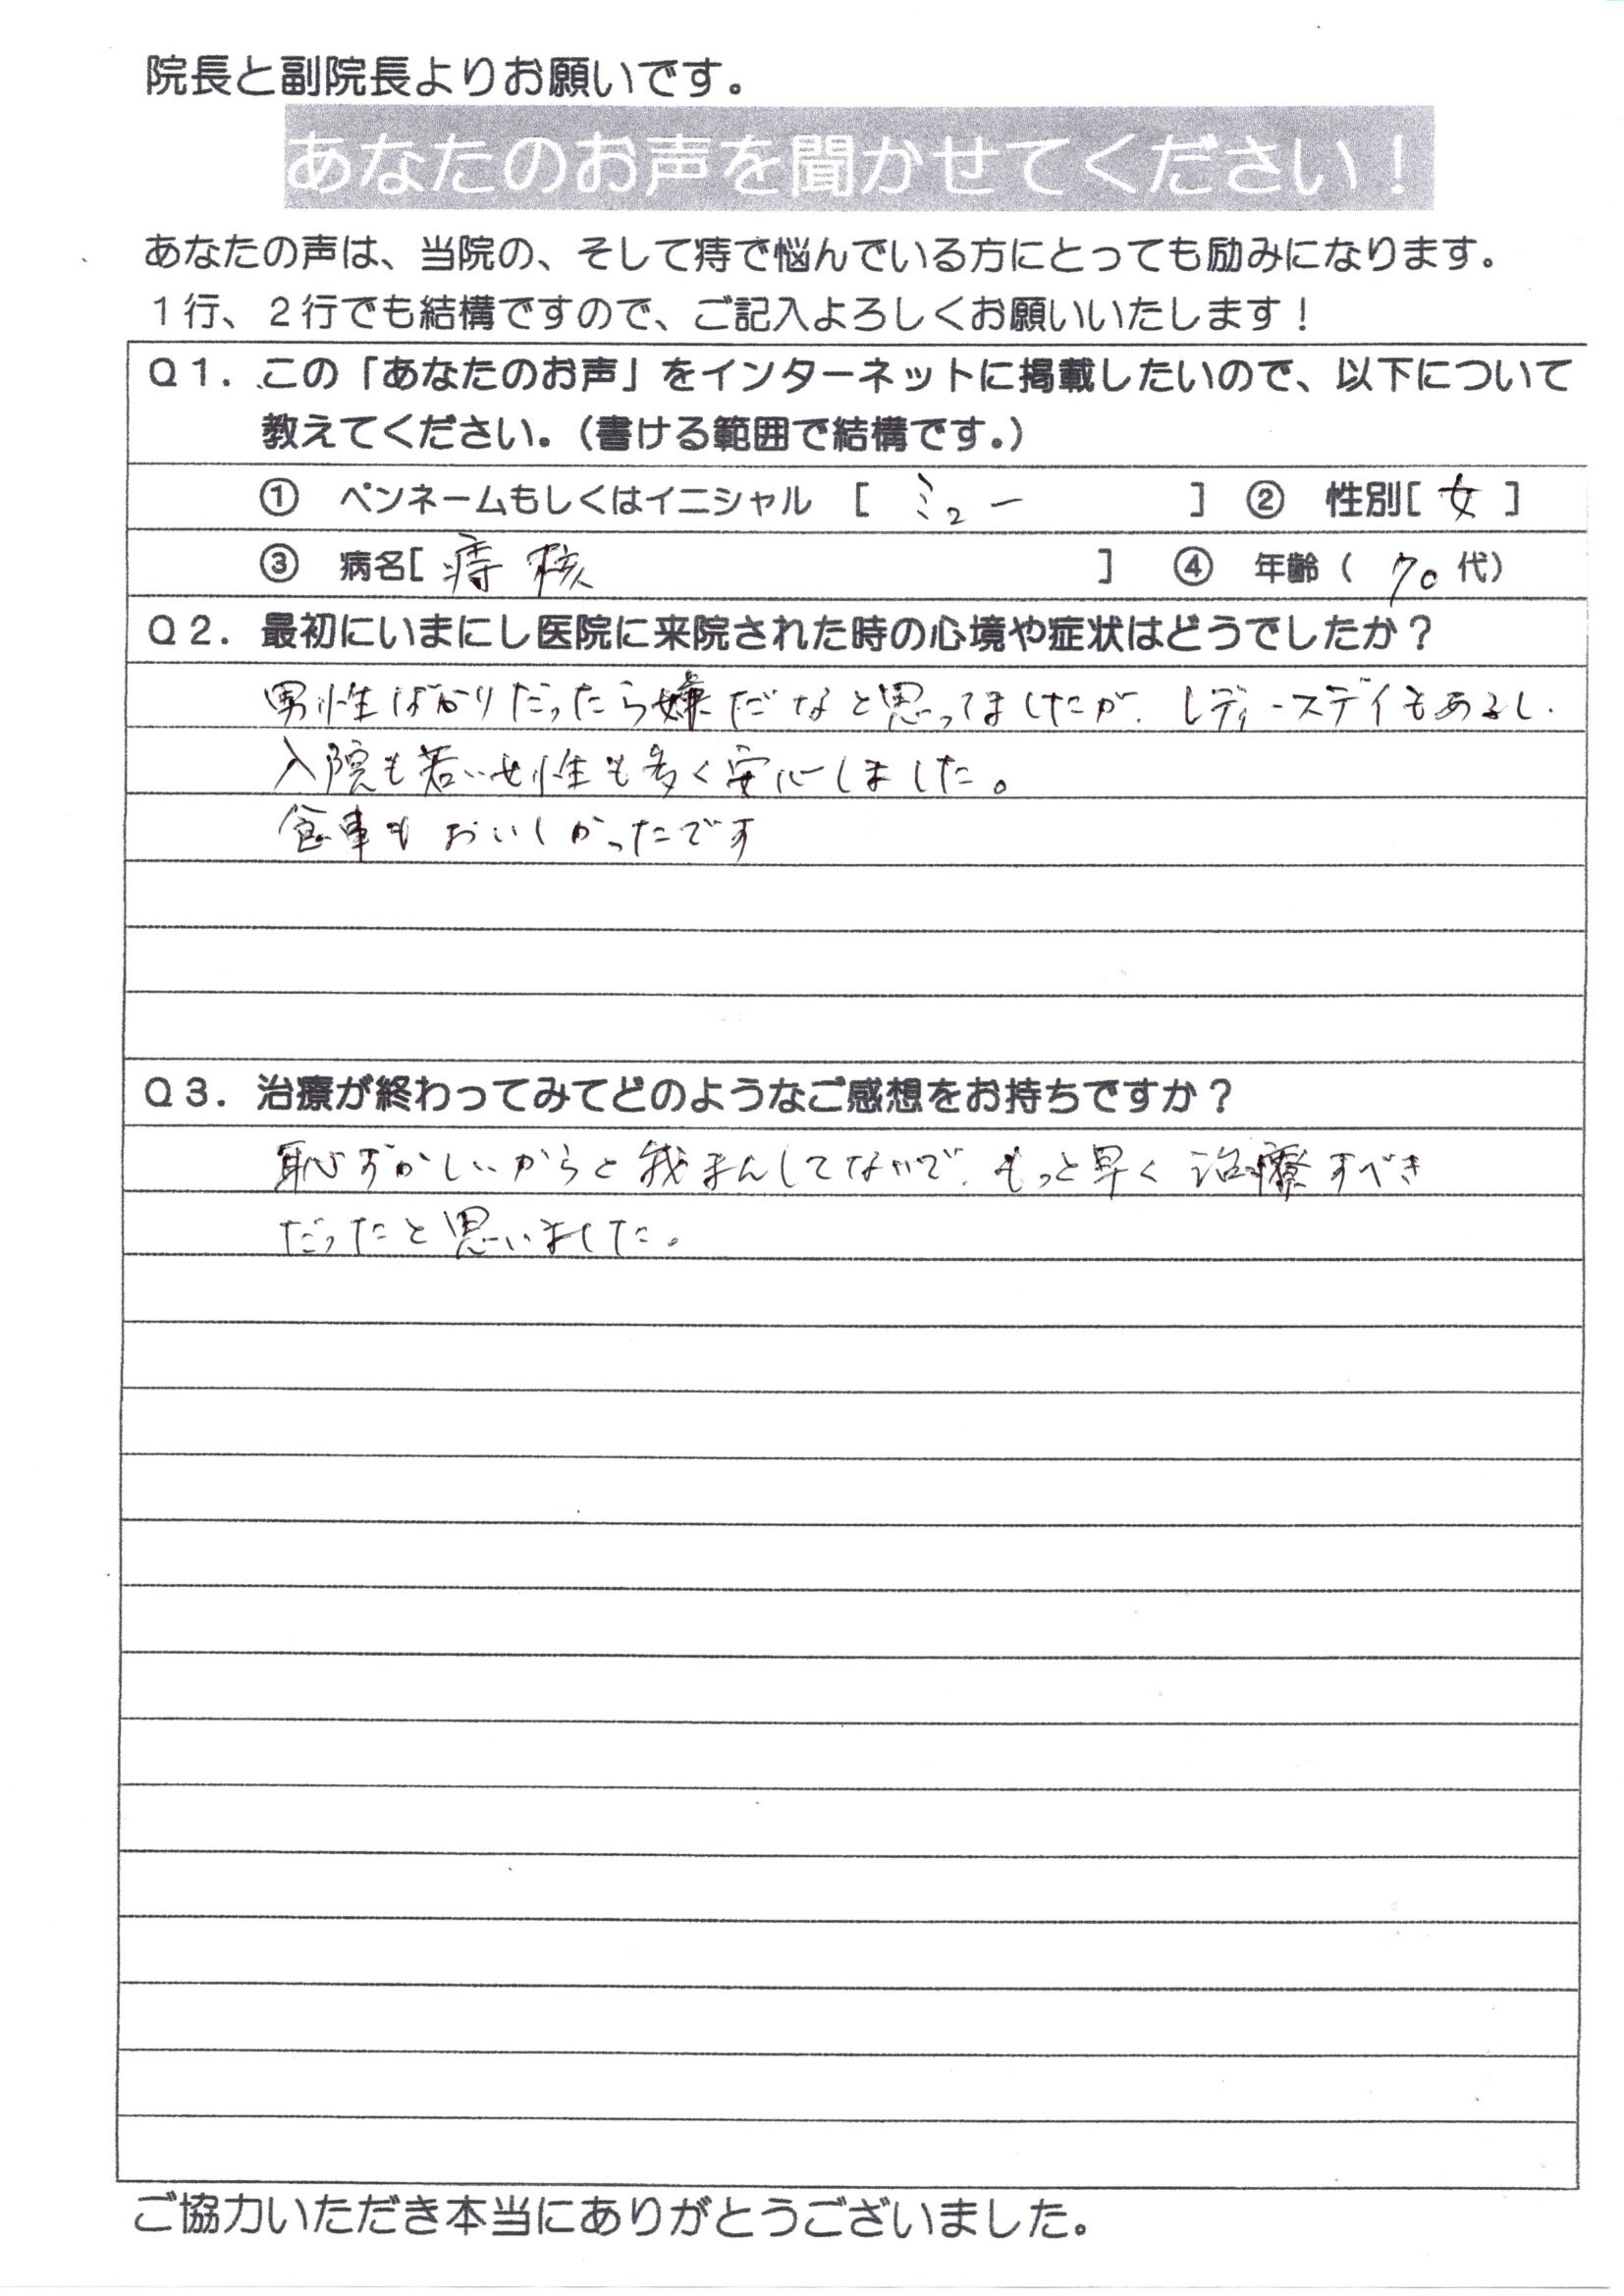 院長と副院長よりお願いです。
あなたのお声を聞かせてください！
あなたの声は、当院の、そして痔で悩んでいる方にとっても励みになります。
１行、２行でも結構ですので、ご記入よろしくお願いいたします！
Ｑ１．この「あなたのお声」をインターネットに掲載したいので、以下について
教えてください。（書ける範囲で結構です。）
① ペンネームもしくはイニシャル ［ ミュー ］ ② 性別［ 女 ］
③ 病名［ 痔核 ］ ④ 年齢（ 70 代）
Ｑ２．最初にいまにし医院に来院された時の心境や症状はどうでしたか？
男性ばかりだったら嫌だなと思ってましたが、レディースデイもあるし、
入院も若い女性も多く安心しました。
食事もおいしかったです
Ｑ３．治療が終わってみてどのようなご感想をお持ちですか？
恥ずかしいからと我まんしてないで、もっと早く治療すべき
だったと思いました。
ご協力いただき本当にありがとうございました。